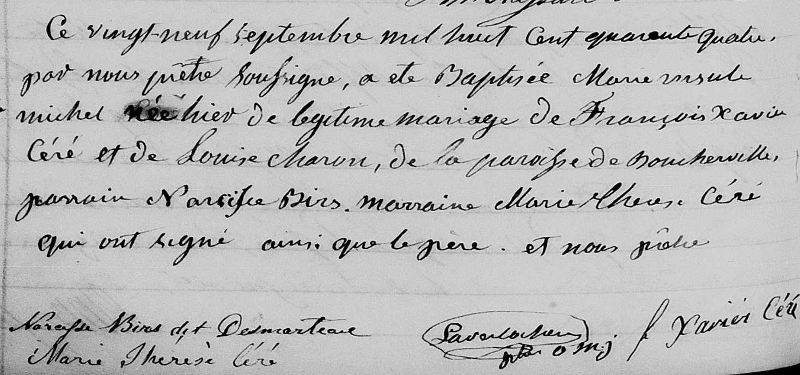 Ce vingt-neuf septembre mil huit cent quarante quatre,
par nous prêtre soussigné, a été Baptisée Marie ursule
michel née hier de legitime mariage de François Xavier
Céré et de Louise charon, de la paroisse de Boucherville,
parrain Narcisse Birs. marraine Marie therese Céré
qui ont signé ainsi que le père. et nous prêtre
Narcisse Birs dit Desmarteau
Marie Thérèse Céré
ptre o m j
f Xavier Céré